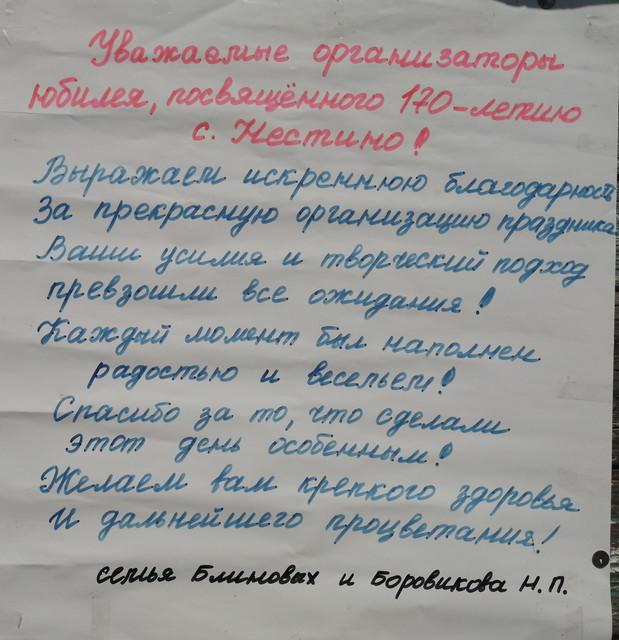 Уважаемые организаторы
юбилея, посвящённого 170-летию
с. Нестино!
Выражаем искреннюю благодарность
За прекрасную организацию праздника
Ваши усилия и творческий подход
превзошли все ожидания!
Каждый момент был наполнен
радостью и весельем!
Спасибо за то, что сделали
этот день особенным!
Желаем вам крепкого здоровья
и дальнейшего процветания!
семья Блиновых и Боровикова Н.П.